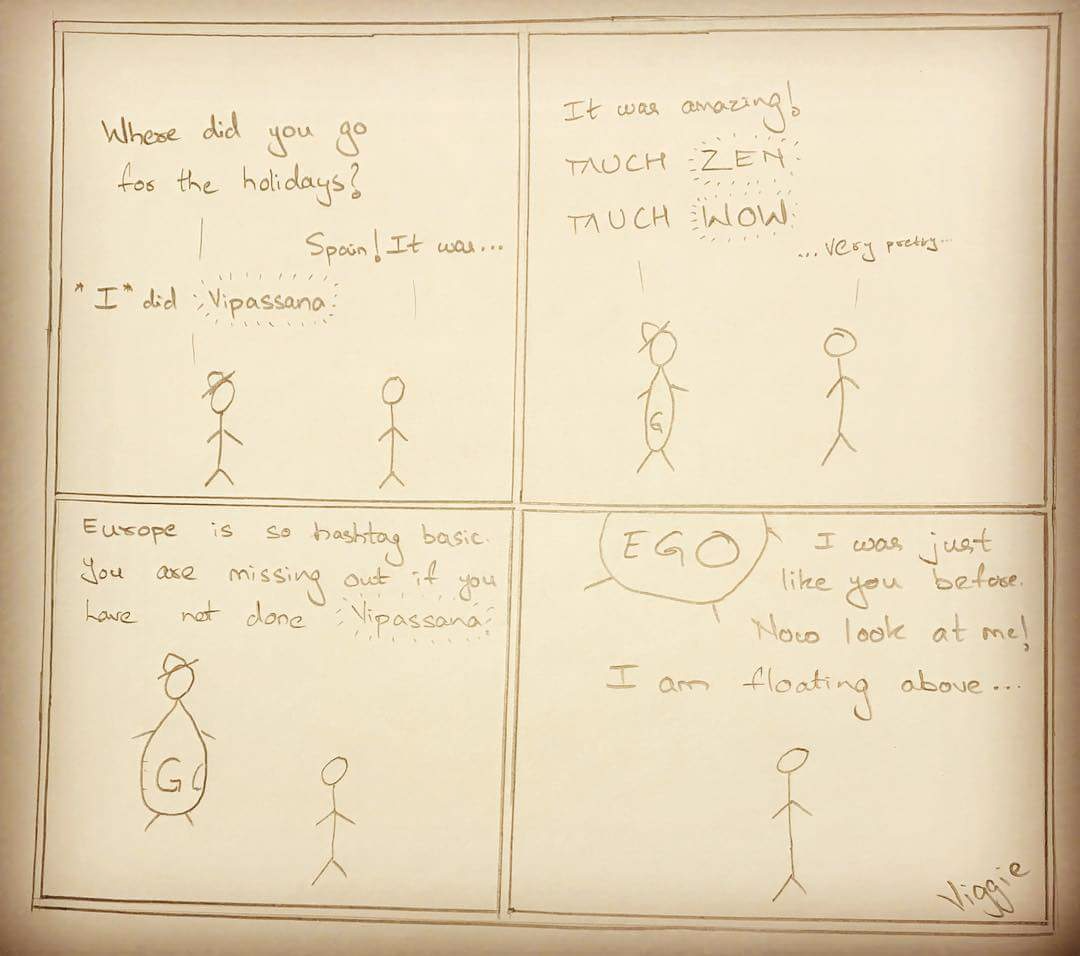 Where did you go
for the holidays?
Spain! It was...
*I* did Vipassana
It was amazing!
TAUCH ZEN
TAUCH WOW
...very pretty...
G
Europe is so hashtag basic.
You are missing out if you
have not done Vipassana
G
EGO
I was just
like you before.
Now look at me!
I am floating above...
Viggie